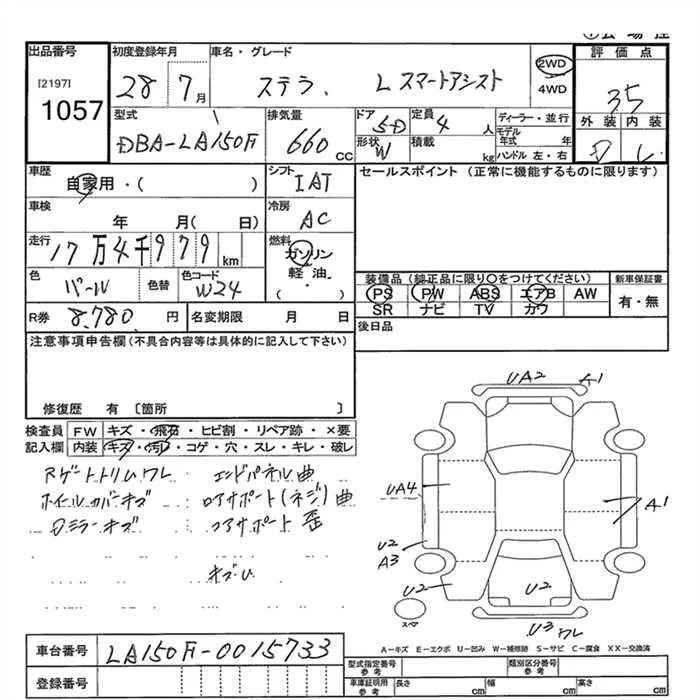 出品番号
[2197]
1057
初度登録年月
28 7月
車名・グレード
ステラ. L スマートアシスト
2WD
4WD
評価点
35
外装 内装
D
型式
DBA-LA150F
排気量
660 CC
ドア
5D
形状
W
定員
4 人
積載
kg
ディーラー・並行
モデル年式 年
ハンドル 左・右
車歴
自家用・( )
シフト
IAT
セールスポイント (正常に機能するものに限ります)
車検
年 月( 日)
冷房
AC
走行
17万4千979km
燃料
ガソリン
軽油・
( )
色
パール
色替
色コード
W24
装備品 (純正品に限り〇をつけてください)
PS PW ABS エアB AW
SR ナビ TV カワ
新車保証書
有・無
R券 8,780 円
名変期限 月 日
後日品
注意事項申告欄 (不具合内容等は具体的に記入して下さい)
修復歴 有 〔箇所 〕
検査員
記入欄
FW キズ・飛石・ヒビ割・リペア跡・×要
内装 キズ・汚レ・コゲ・穴・スレ・キレ・破レ
Rゲートトリムワレ
エンドパネル曲
ホイールカバーキズ
ロアサポート(ネジ)曲
Dミラーキズ
コアサポート 歪
キズU
UA2 A1
UA4 A1
U2
A3
U2 U2
スペア
U3 ワレ
A－キズ E－エクボ U－凹み W－補修跡 S－サビ C－腐食 XX－交換済
車台番号 LA150F-0015733
登録番号
型式指定番号
参考
類別区分番号
参考
車庫証明用
参考
長さ cm 幅 cm 高さ cm